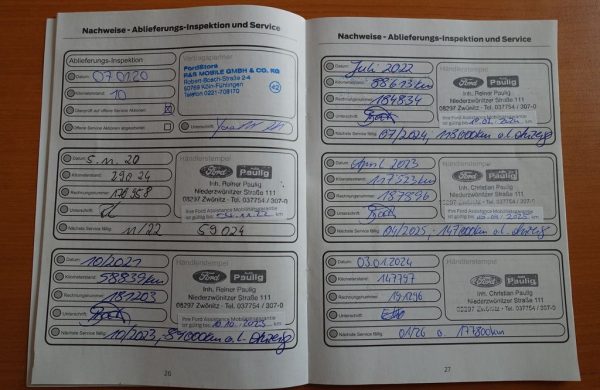 Nachweise - Ablieferungs-Inspektion und Service
Ablieferungs-Inspektion
Datum: 07.01.20
Kilometerstand: 10
Überprüft auf offene Service Aktionen
Offene Service Aktionen abgearbeitet
Vertragspartner
FordStore
R&S MOBILE GMBH & CO. KG
Robert-Bosch-Straße 2-4
50769 Köln-Fühlingen
Telefon 0221-708170
42
Unterschrift
Datum: 5.11.20
Kilometerstand: 29024
Rechnungsnummer:
Unterschrift:
Nächste Service fällig: 11/22 59024
Händlerstempel
Ford Paulig
Inh. Reiner Paulig
Niederzwönitzer Straße 111
08297 Zwönitz · Tel. 037754 / 307-0
Ihre Ford Assistance Mobilitätsgarantie
ist gültig bis km
Datum: 10/2021
Kilometerstand: 58839km
Rechnungsnummer: 181203
Unterschrift:
Nächste Service fällig: 10/2023, 89000km o.l.
Händlerstempel
Ford Paulig
Inh. Reiner Paulig
Niederzwönitzer Straße 111
08297 Zwönitz · Tel. 037754 / 307-0
26
Nachweise - Ablieferungs-Inspektion und Service
Datum: Juli 2022
Kilometerstand: 88613km
Rechnungsnummer: 184834
Unterschrift:
Nächste Service fällig: 07/2024, 118000km o.l. Anzeige
Händlerstempel
Ford Paulig
Inh. Reiner Paulig
Niederzwönitzer Straße 111
08297 Zwönitz · Tel. 037754 / 307-0
Datum: April 2023
Kilometerstand: 117523km
Rechnungsnummer: 187896
Unterschrift:
Nächste Service fällig: 04/2025, 147000km o.l. Anzeige
Händlerstempel
Ford Paulig
Inh. Christian Paulig
Niederzwönitzer Straße 111
08297 Zwönitz · Tel. 037754 / 307-0
Ihre Ford Assistance Mobilitätsgarantie
Datum: 03.01.2024
Kilometerstand: 147797
Rechnungsnummer: 191296
Unterschrift:
Nächste Service fällig: 01/26 o. 177800km
Händlerstempel
Ford Paulig
Inh. Christian Paulig
Niederzwönitzer Straße 111
08297 Zwönitz · Tel. 037754 / 307-0
27